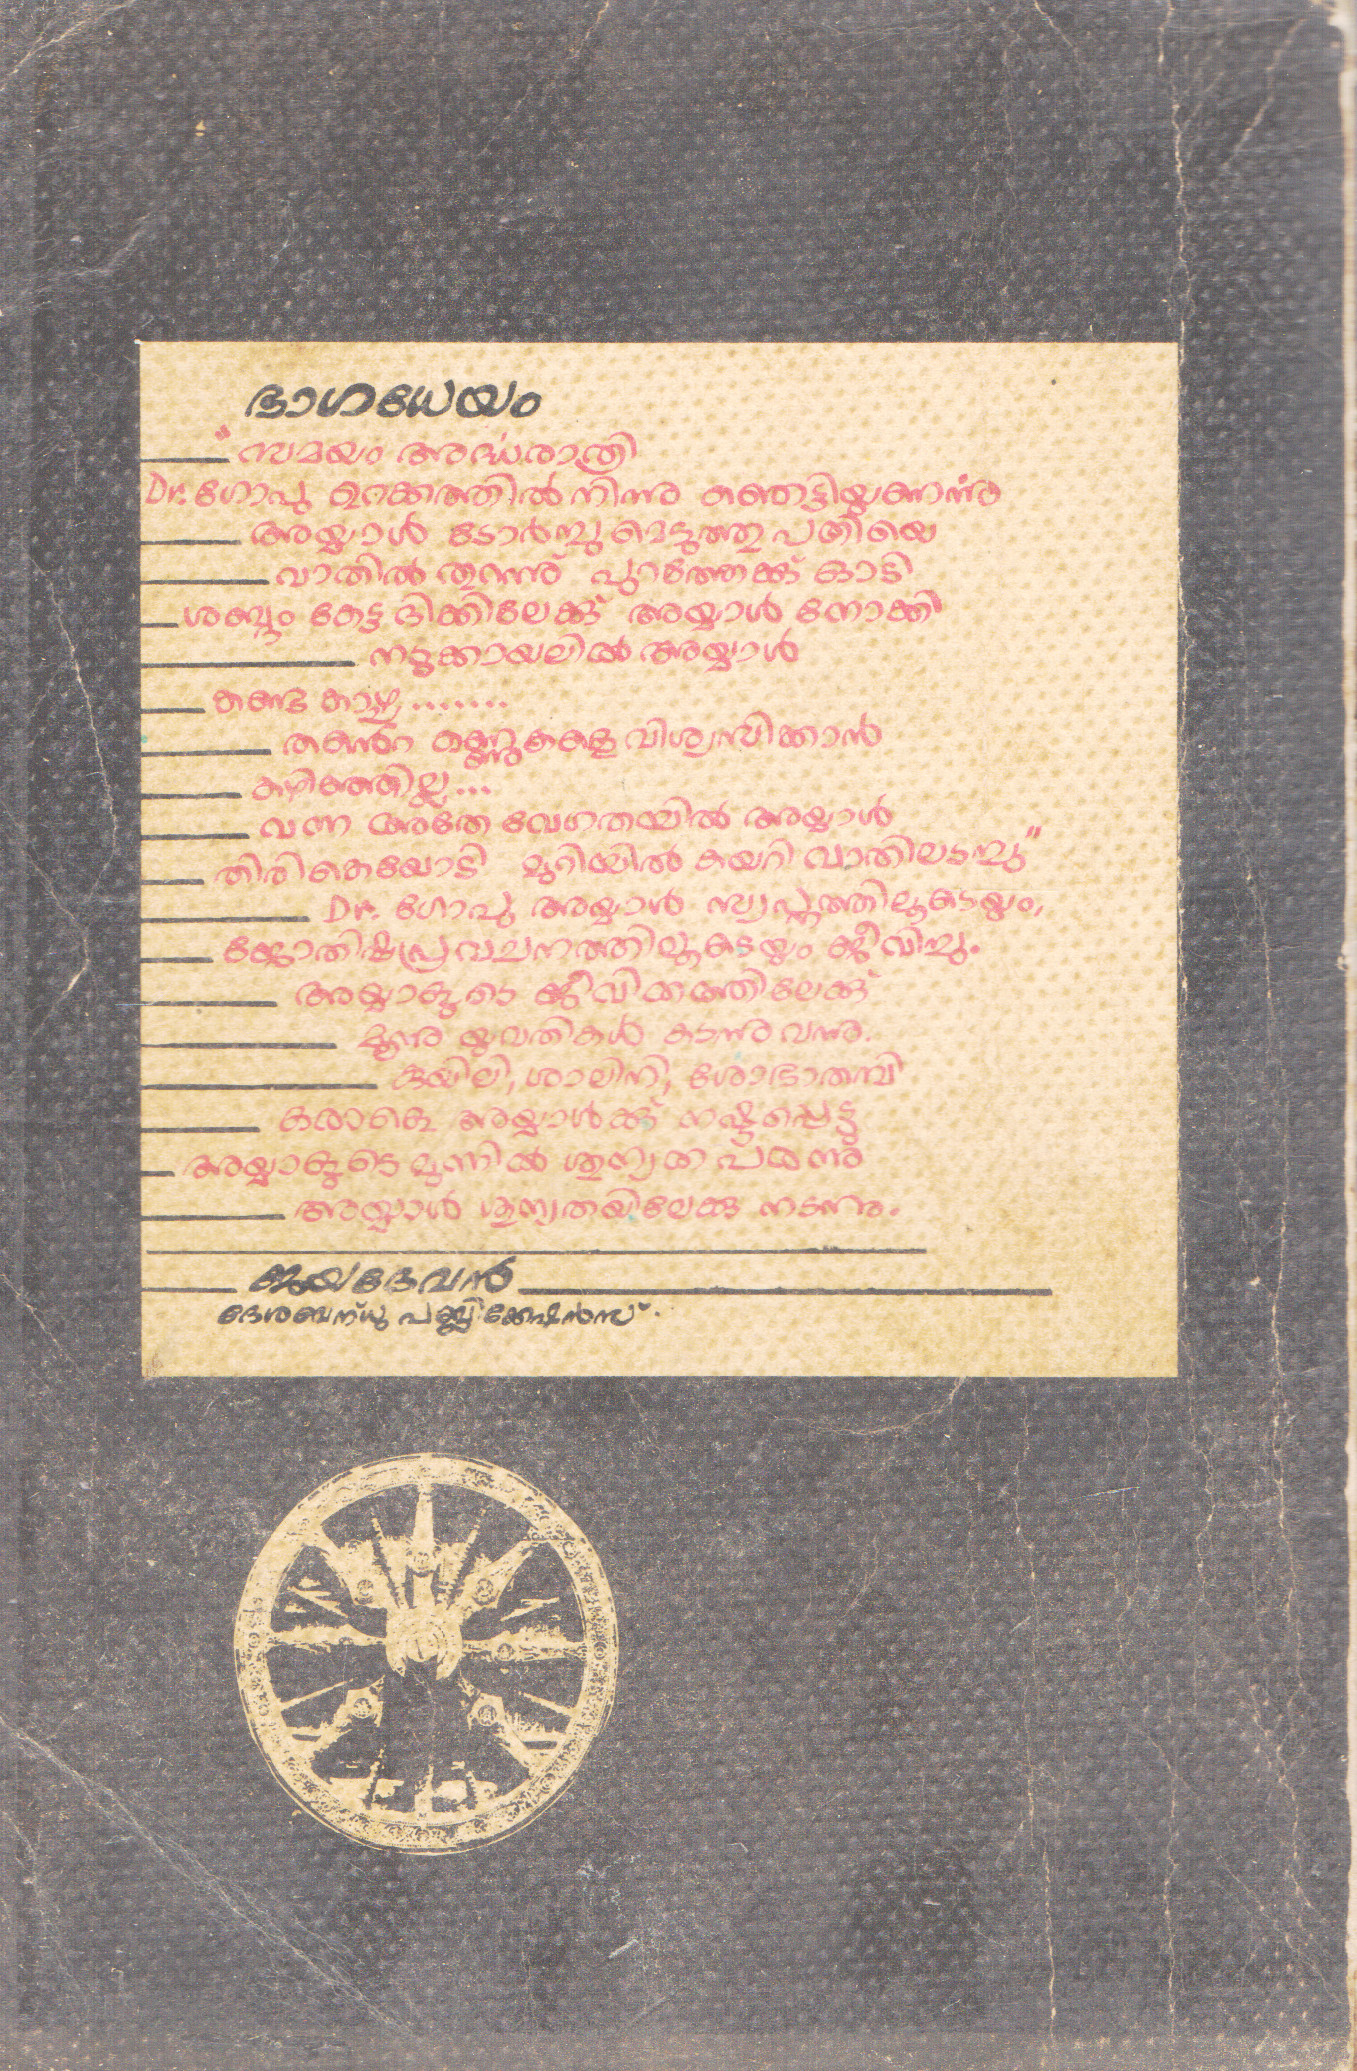 ഭാഗധേയം
"സമയം അർദ്ധരാത്രി
Dr. ഗോപു ഉറക്കത്തിൽ നിന്നു ഞെട്ടിയുണർന്നു
അയ്യാൾ ടോർച്ചുമെടുത്തു പതിയെ
വാതിൽ തുറന്നു് പുറത്തേക്ക് ഓടി
ശബ്ദം കേട്ട ദിക്കിലേക്കു് അയ്യാൾ നോക്കി
നടുക്കായലിൽ അയ്യാൾ
കണ്ട കാഴ്ച.......
തന്റെ കണ്ണുകളെ വിശ്വസിക്കാൻ
കഴിഞ്ഞില്ല...
വന്ന അതേ വേഗതയിൽ അയ്യാൾ
തിരികെയോടി മുറിയിൽ കയറി വാതിലടച്ചു"
Dr. ഗോപു അയ്യാൾ സ്വപ്നത്തിലൂടെയും,
ജ്യോതിഷപ്രവചനത്തിലൂടെയും ജീവിച്ചു.
അയ്യാളുടെ ജീവിതത്തിലേക്കു്
മൂന്നു യുവതികൾ കടന്നു വന്നു.
കുയിലി, ശാലിനി, ശോഭാതമ്പി
അയ്യാൾക്കു് നഷ്ടപ്പെട്ടു
അയ്യാളുടെ മുന്നിൽ ശൂന്യത പരന്നു
അയ്യാൾ ശൂന്യതയിലേക്കു നടന്നു.
ജയദേവൻ
ദേശബന്ധു പബ്ലിക്കേഷൻസ്.